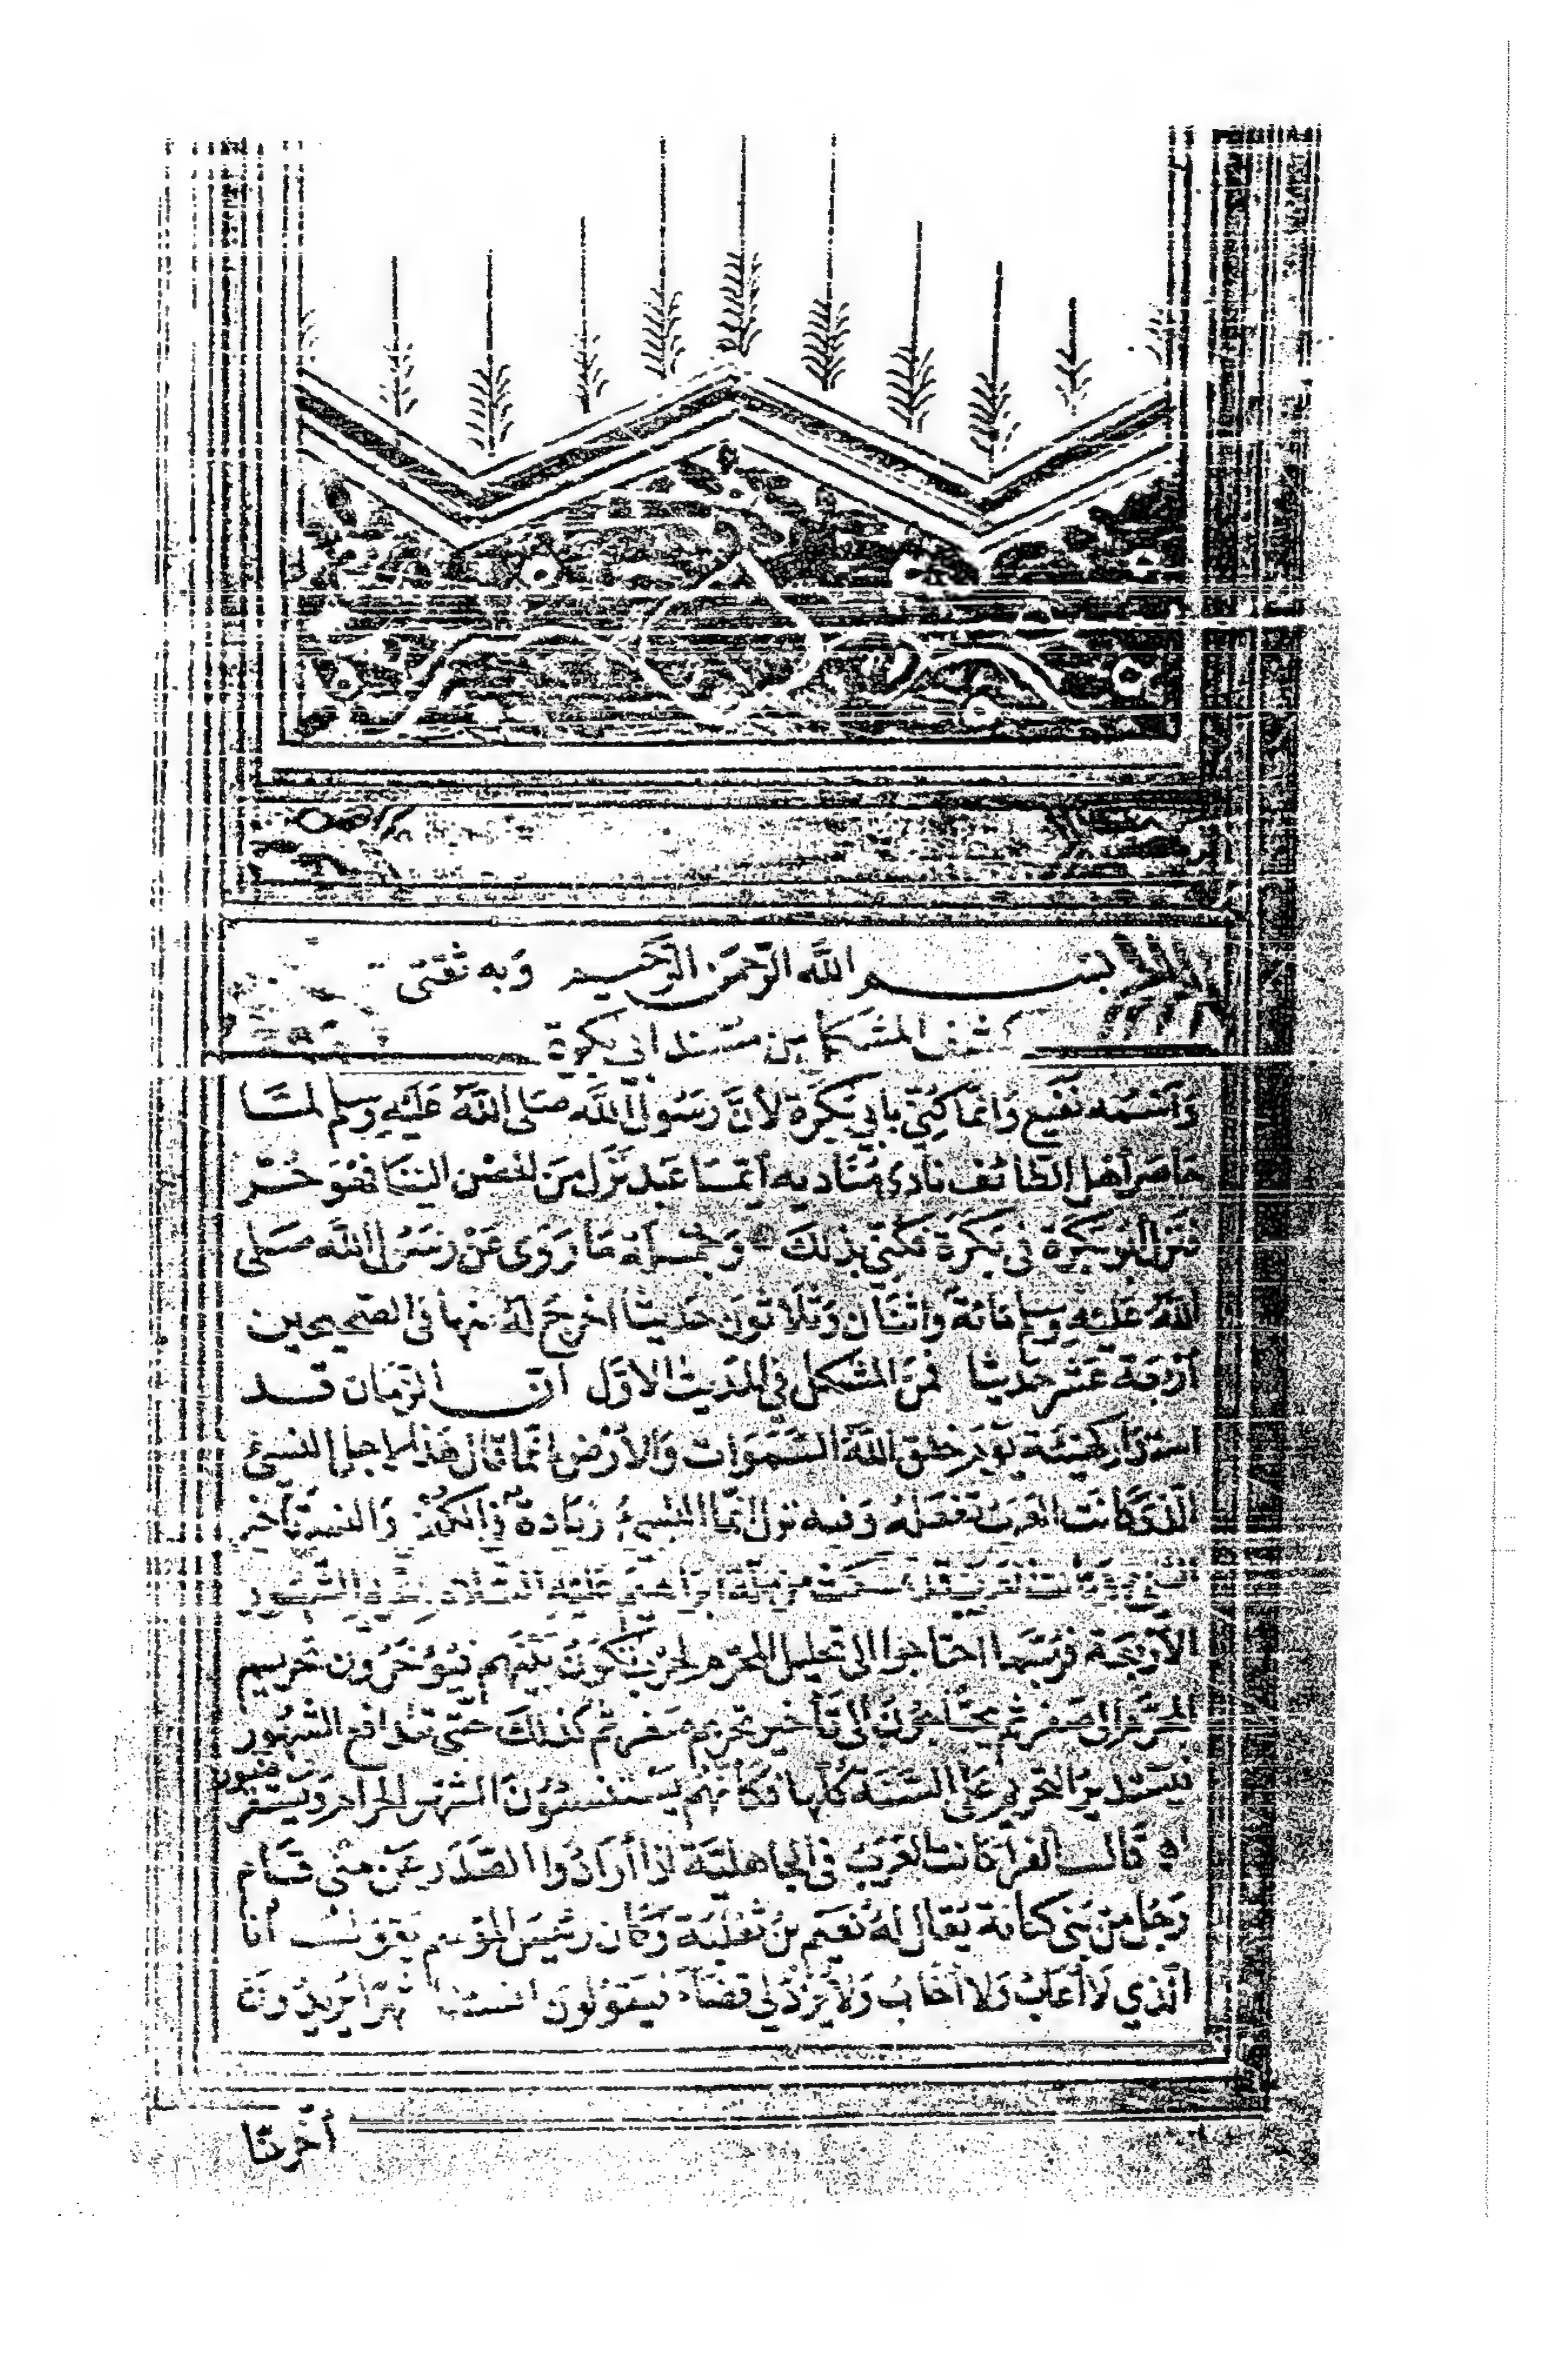 بسم الله الرحمن الرحيم وبه ثقتي
كشف المشكل من مسند أبي بكرة
وَاسمه نفيع وَانما كني بأبي بكرة لأنَّ رَسُول الله صَلى اللهُ عَليْهِ وسلم لمـَّا
حَاصَر أهل الطائف نادى مُنَاديه أيّما عَبد نزل مِنَ الحصْن الينا فهُوَ حُـر
فنزل أبو بكرة في بَكرَة فكنّي بذلكَ وَجملة مَا رَوَى عَنْ رَسُول الله صَلى
اللهُ عَليْهِ وسلم مائة وَاثنان وَثلاثون حَديثا اخرجَ لهُ منها في الصَّحيحين
أرْبعَة عَشر حَديثا فمنَ المشكل في الحَديث الأوّل انّ الزمَان قـد
استدار كهيئته يَوم خلق اللهُ السَّمَوات وَالأرْض انما قال هَذا لاجل النسئ
الذي كانَت العَرب تفعَله وَفيه نزل انمّا النسيءُ زيَادة في الكفر وَالنسئ تأخير
الشئ وَكانت العَرب قد تمسكت من ملة ابراهيم عَليه السَّلام بتحريم الشهور
الأرْبعَة فرُبّما احتاجوا الى تحليل المحَرّم لحرْب تكوُن بَيْنَهم فيُؤخّرُون تحريم
المحرّم الى صَفر ثم يحتَاجُونَ الى تأخير تحريم صَفر ثم كذلكَ حَتّى تتدافع الشهُور
فيَستدير التحريم عَلى السَّنة كلّها فكأنهُم يَستنسئوُنَ الشهر الحرام وَيستقرضون
قالَ الفرا كانت العَرَبُ في الجاهليَّة اذا أرَادُوا الصَّدَر عَن منى قَـام
رَجُل من بَني كنانة يُقال لهُ نُعَيم بنُ ثعْلبَة وَكَان رَئيسَ المَوسم فيَقول أنا
الّذي لا أُعَابُ وَلا أخَابُ وَلا يُرَدُّ لي قضَاء فيَقولون انسئنا شهرا يُريدُونَ
أخّرنَا